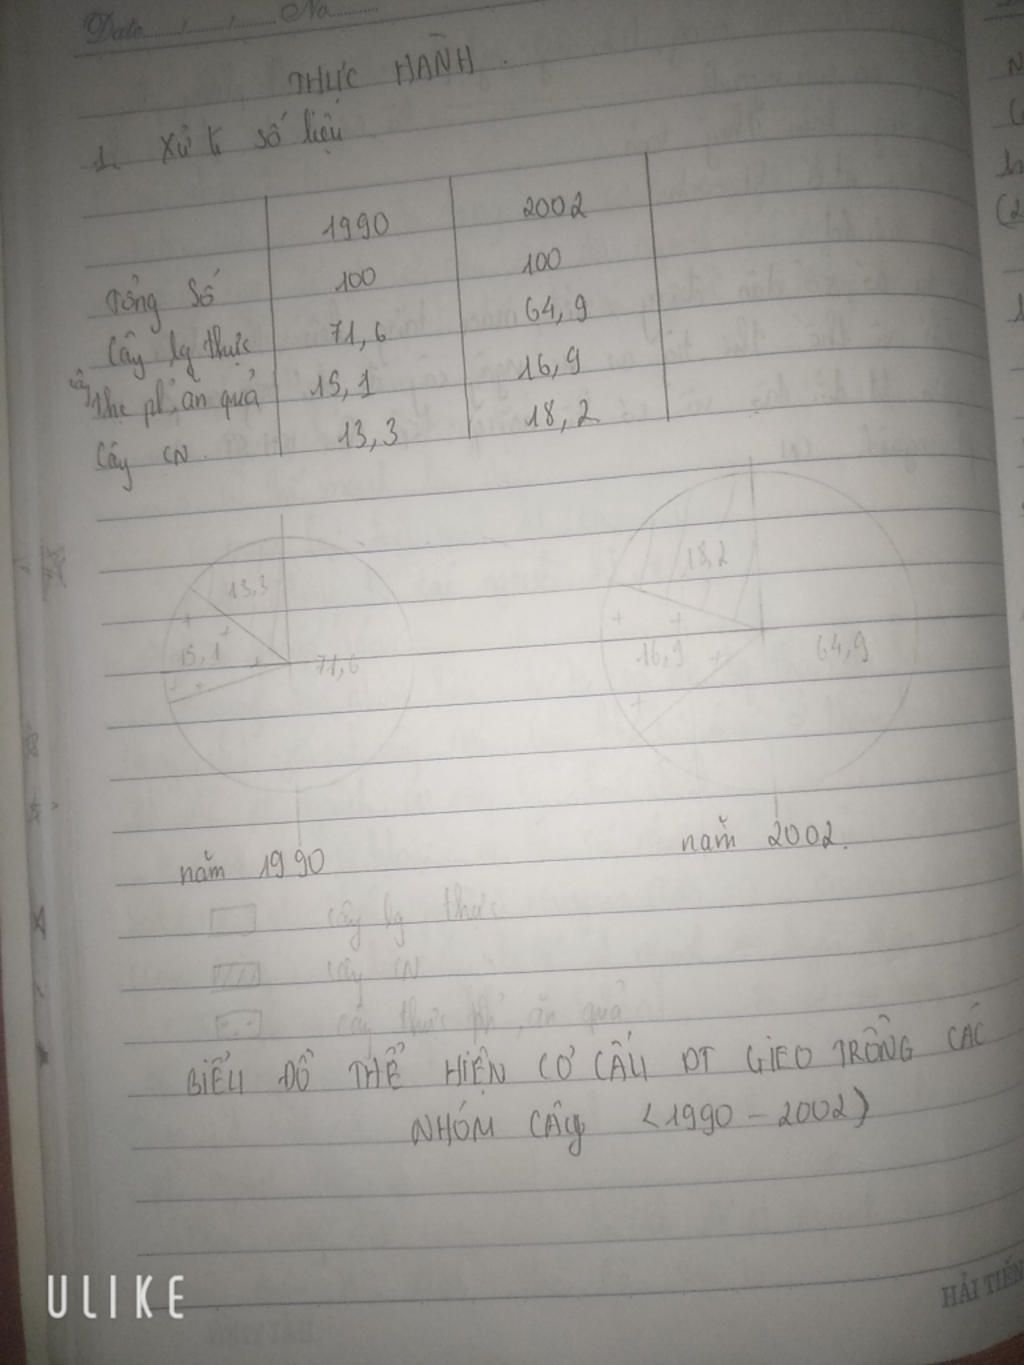 Date ....../....../...... No
THỰC HÀNH.
1. Xử lí số liệu
1990 2002
Tổng số 100 100
Cây lg thực 71,6 64,9
cây thực ph, ăn quả 15,1 16,9
Cây CN 13,3 18,2
13,3 18,2
15,1 71,6 16,9 64,9
năm 1990 năm 2002.
cây lg thực
cây CN
cây thực ph, ăn quả
BIỂU ĐỒ THỂ HIỆN CƠ CẤU DT GIEO TRỒNG CÁC
NHÓM CÂY (1990 - 2002)
HẢI TIẾN
ULIKE